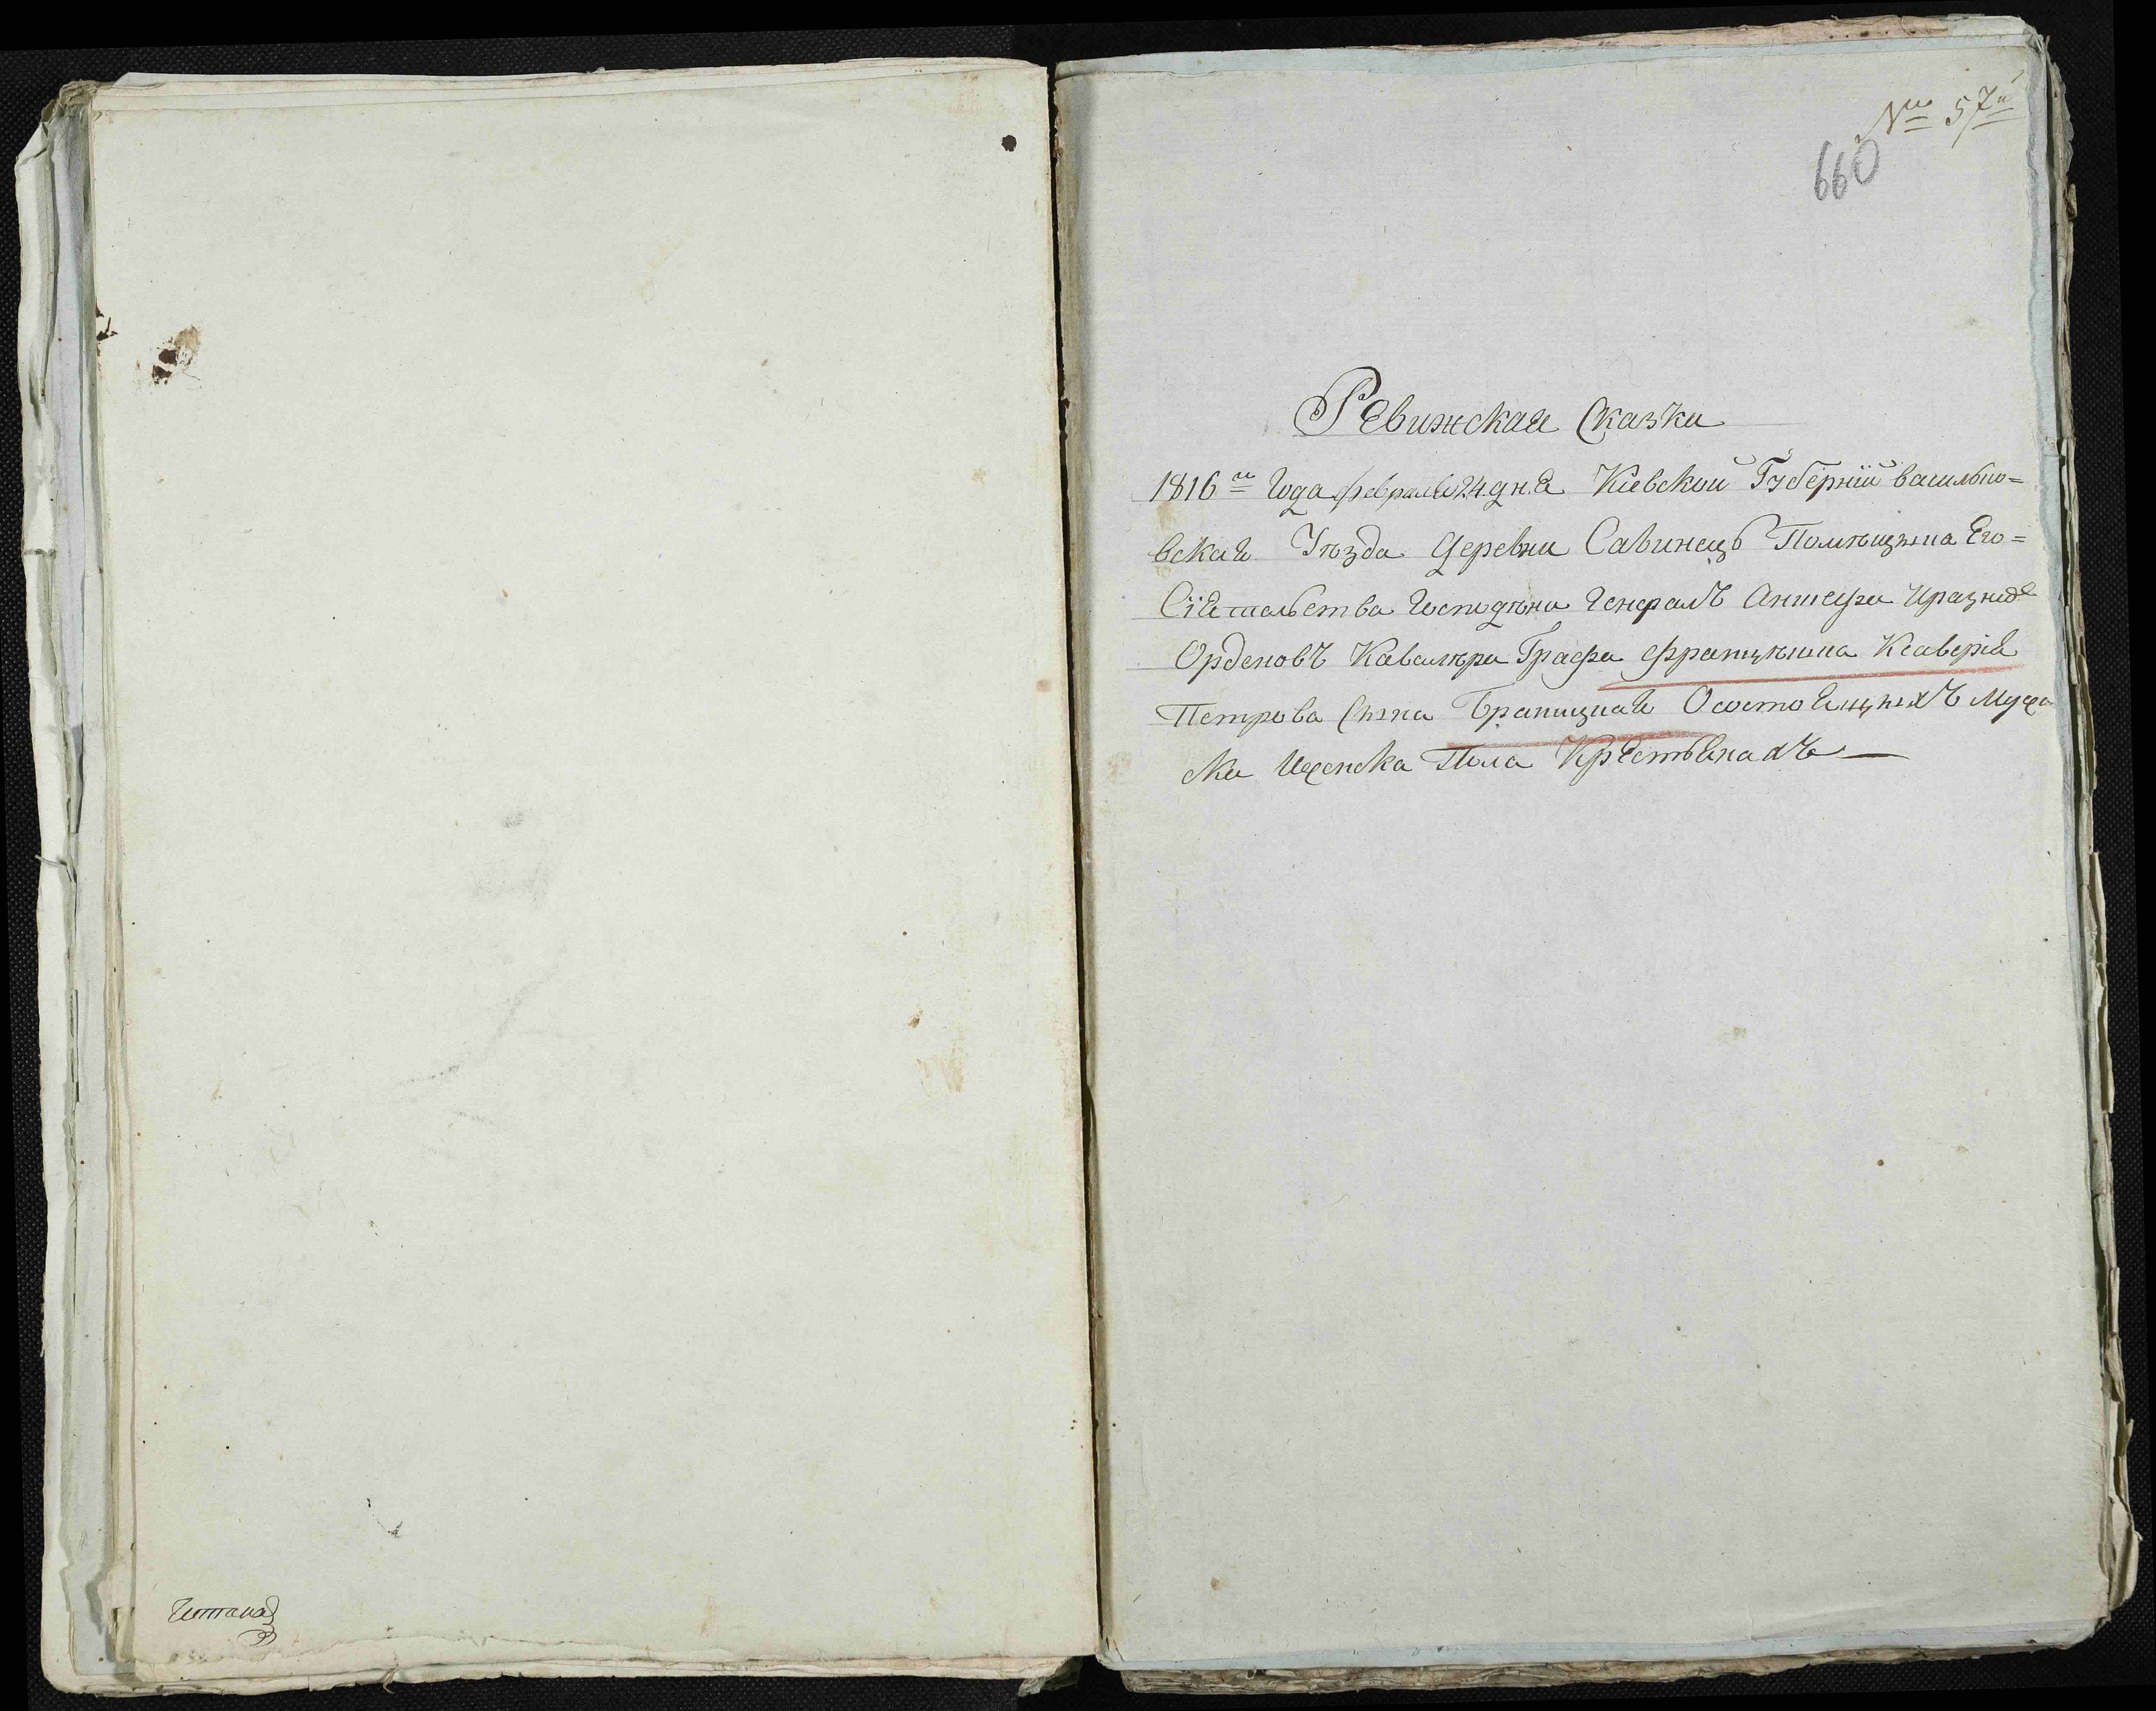 № 57й
660
Ревижская Сказка
1816го Года февраля 24 дня Киевской Губернии василько=
вскаго Уезда Деревни Савинецъ Помѣщика Его=
Сіятельства Господина Генералъ Аншефа и разныхъ
Орденовъ Кавалѣра Графа францѣшка Ксаверія
Петрова Сына Браницкаго О состоящихъ мужес
ка и женска Пола Крестьянахъ
Читалъ